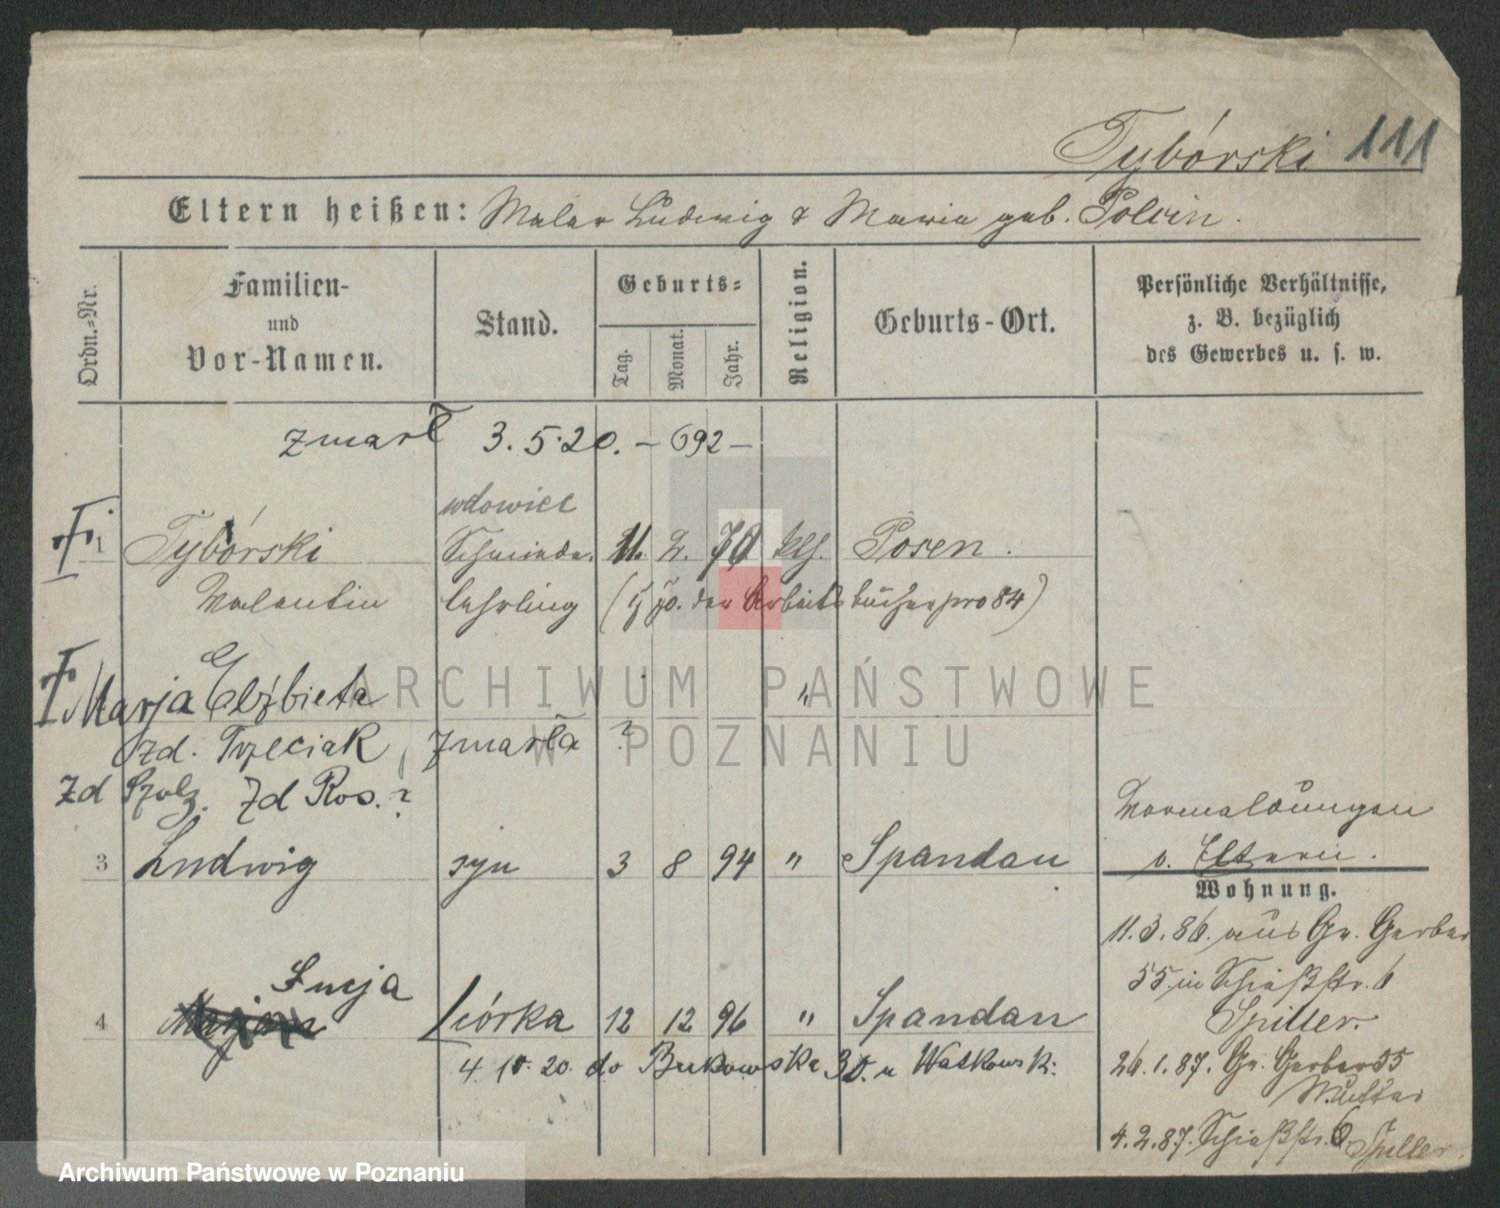 Tybórski 111
Eltern heißen: Maler Ludwig & Maria geb. Polcin.
Ordn.-Nr.
Familien-
und
Vor-Namen.
Stand.
Geburts-
Tag.
Monat.
Jahr.
Religion.
Geburts-Ort.
Persönliche Verhältnisse,
z. B. bezüglich
des Gewerbes u. s. w.
zmarł 3.5.20. – 692 –
wdowiec
1 Tybórski Schmiede- 11. 2. 70 kth. Posen.
Valentin lehrling ( der Arbeitsbücher pro 84)
Marja Elżbieta "
zd. Trzeciak, zmarła ?
zd Szulz. zd Ros. ?
Vormeldungen
v. Eltern.
3 Ludwig syn 3 8 94 " Spandau
Wohnung.
11.3.86. aus Gr. Gerber
55. in Schießstr. 6
Spiller.
Łucja
4 córka 12 12 96 " Spandau
4. 10. 20. do Bukowska 30. u Watkowsk:
26.1.87. Gr. Gerber 55
Mutter
4.2.87. Schießstr. 6. Spiller.
ARCHIWUM PAŃSTWOWE
W POZNANIU
Archiwum Państwowe w Poznaniu